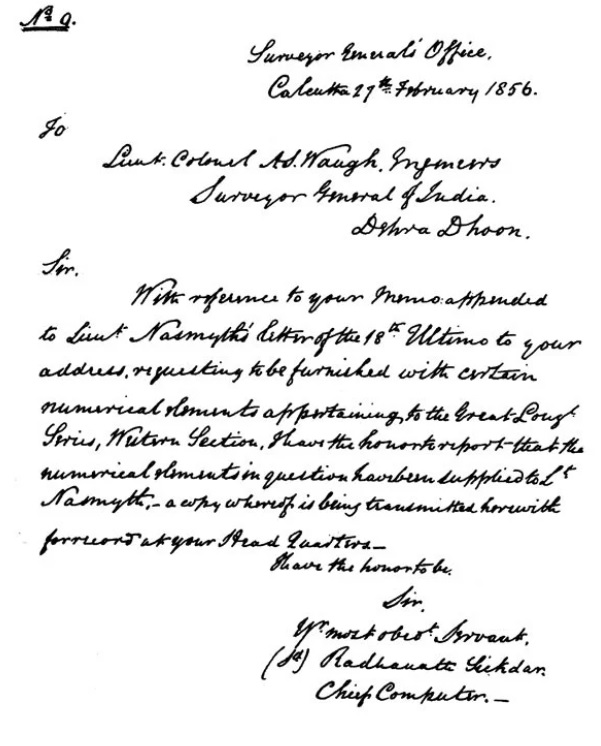 No. 9.
Surveyor General's Office.
Calcutta 27th February 1856.
To
Lieut. Colonel A.S. Waugh. Engineers
Surveyor General of India.
Dehra Dhoon.
Sir.
With reference to your Memo: appended
to Lieut Nasmyth's letter of the 18th Ultimo to your
address, requesting to be furnished with certain
numerical elements appertaining to the Great Longl
Series, Western Section, I have the honor to report that the
numerical elements in question have been supplied to Lt
Nasmyth, - a copy whereof is being transmitted herewith
for record at your Head Quarters -
I have the honor to be.
Sir.
Yr most obedt Servant.
(Sd) Radhanath Sickdar.
Chief Computer. -